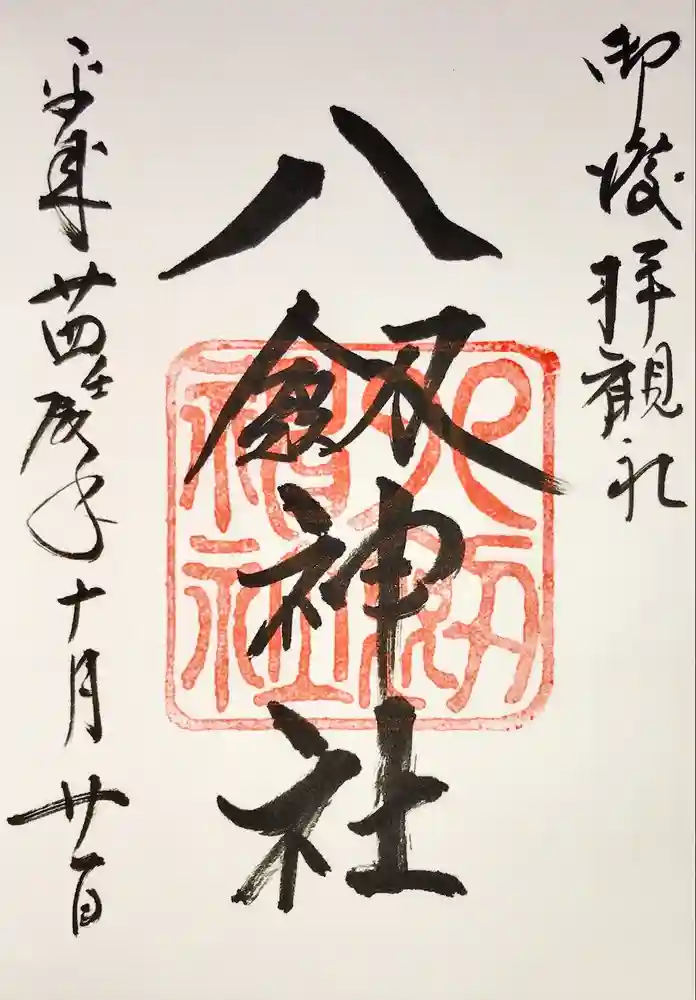 御渡拝観礼
八劔
神社
八劔神社
平成廿四壬辰年十月廿一日